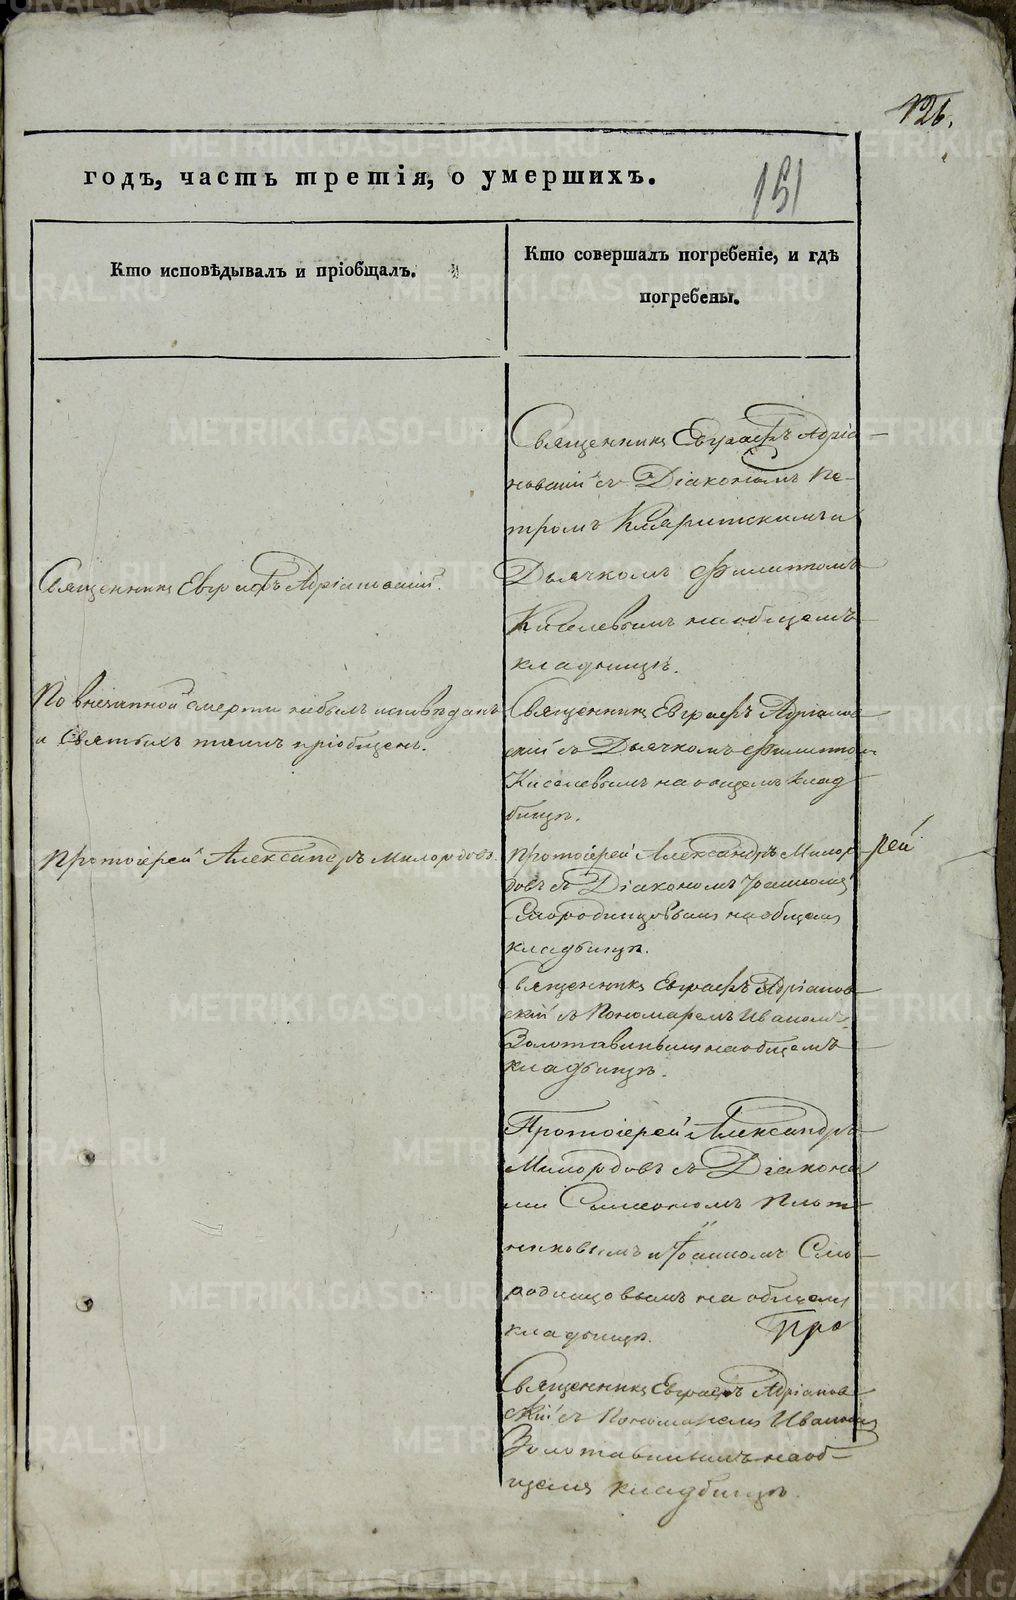 126.
годъ, часть третія, о умершихъ.
151
Кто исповѣдывалъ и пріобщалъ.
Кто совершалъ погребеніе, и гдѣ
погребены.
Священникъ Евграфъ Адріановскій.
Священникъ Евграфъ Адріа-
новскій съ Діакономъ Пе-
тромъ и
Дьячкомъ Филиппомъ
Киселевымъ на общемъ
кладбищѣ.
По внезапной смерти небылъ исповѣданъ
и Святыхъ таинъ пріобщенъ.
Священникъ Евграфъ Адріанов-
скій съ Дьячкомъ Филиппом
Киселевымъ на общемъ клад-
бищѣ.
Протоіерей Александръ Милордовъ.
Протоіерей Александръ Милор-
довъ съ Діакономъ Іоанномъ
Смородинцовымъ на общемъ
кладбищѣ.
рей
Священникъ Евграфъ Адріанов-
скій съ Пономаремъ Иваномъ
Золотавинымъ на общемъ
кладбищѣ.
Протоіерей Александръ
Милордовъ съ Діакона-
ми Симеономъ Плот-
никовымъ и Іоанномъ Смо-
родинцовымъ на общемъ
кладбищѣ.
Про
Священникъ Евграфъ Адріанов-
скій съ Пономаремъ Иваномъ
Золотавинымъ на об-
щемъ кладбищѣ.
METRIKI.GASO-URAL.RU